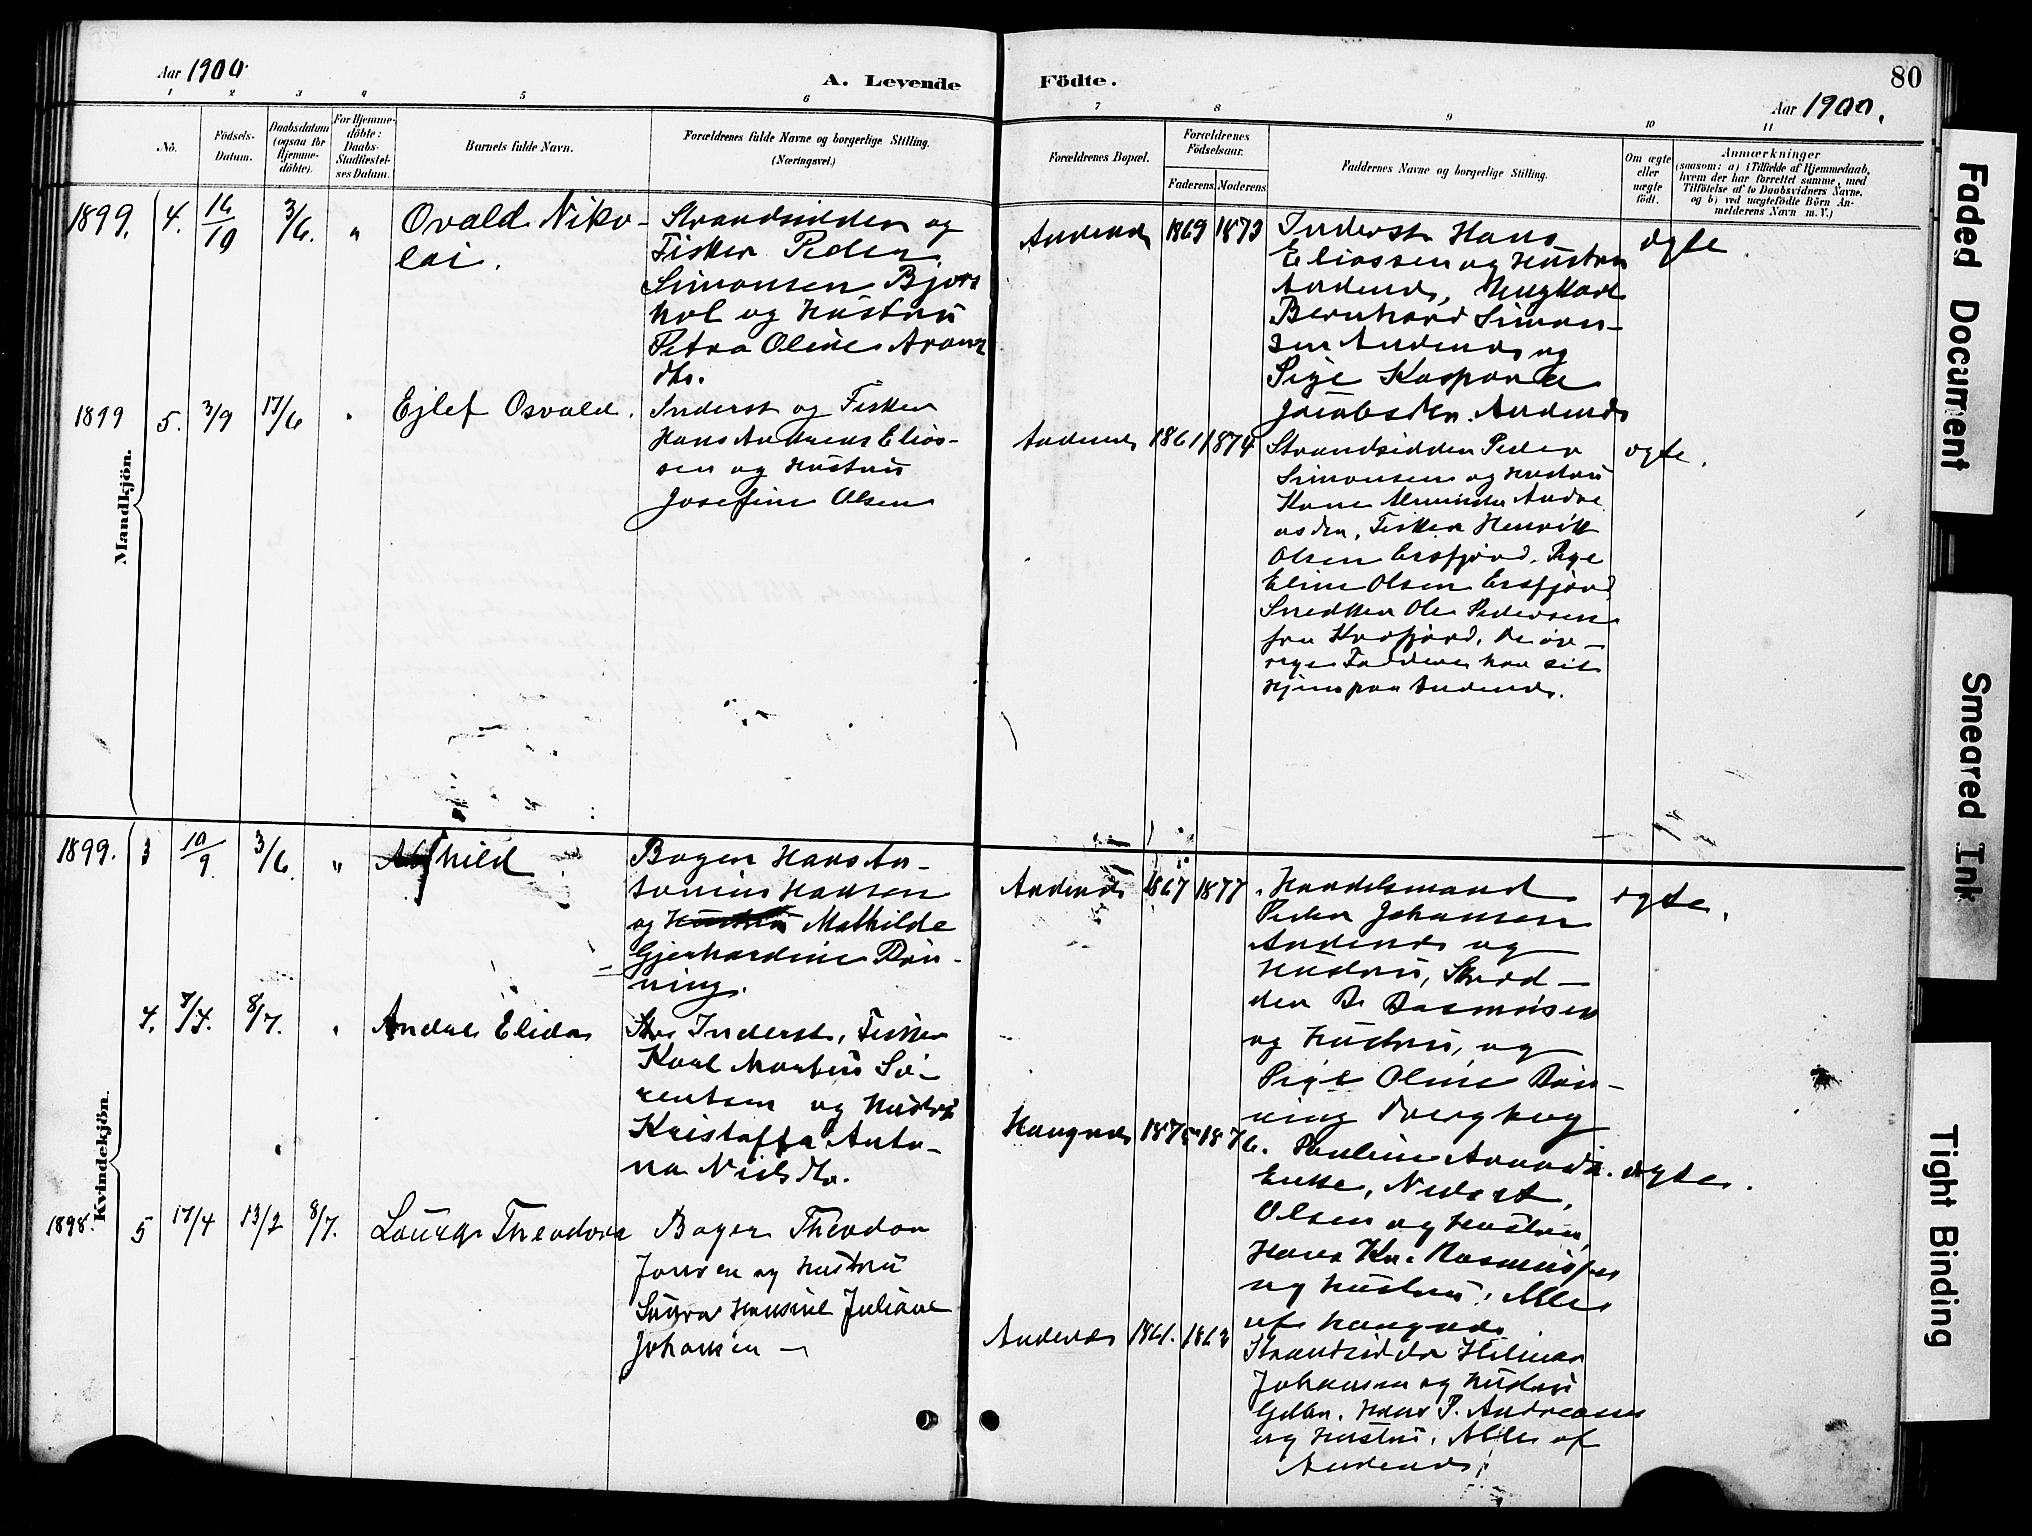 Aar 1900.
A. Levende
Födte.
80
Aar 1900.
1 2 3 4 5 6 7 8 9 10 11
No.
Födsels-
Datum.
Daabsdatum
(ogsaa for
Hjemme-
döbte).
For Hjemme-
döbte:
Daabs-
Stadfæstel-
ses Datum.
Barnets fulde Navn.
Forældrenes fulde Navne og borgerlige Stilling.
(Næringsvei.)
Forældrenes Bopæl.
Forældrenes
Födselsaar.
Faderens. Moderens.
Faddernes Navne og borgerlige Stilling.
Om ægte
eller
uægte
födt.
Anmærkninger
(saasom: a) i Tilfælde af Hjemmedaab,
hvem der har forrettet samme, med
Tilföielse af to Daabsvidners Navne.
og b) ved uægtefödte Börn An-
melderens Navn m. V.)
Mandkjön.
1899. 4. 3/6. "
Ovald Niko-
lai.
Strandsidder og
Fisker Peder
Simonsen
og Hustru
Petra Oline
Andenes 1869 1873
Inderst Hans
Eliassen og Hustru
Andenes, Ungkarl
Bernhard Simon-
sen Andenes og
Pige
Andenes
ægte.
1899 5. 3/9 17/6 "
Ejlef Osvald.
Inderst og Fisker
Hans Andreas Elias-
sen og Hustru
Josefine Olsen
Andenes 1861 1874
Strandsidder Peder
Simonsen og Hustru
Fisker Henrik
Olsen Ersfjord. Pige
Eline Olsen Ersfjord
Snedker Ole Pedersen
fra De öv-
rige Faddere har sit
Hjem paa Andenes.
ægte.
Kvindekjön.
1899. 3 10/9 3/6. "
Alfhild
Bager Hans An-
tonius Hansen
og Hustru Mathilde
Gjerhardine Rön-
ning.
Andenes 1867 1877
Handelsmand
Peder Johansen
Andenes og
Hustru, Skred-
der Rasmusen
og Hustru, og
Pige Oline Rön-
ning
ægte.
4. 8/7. "
Elida
Inderst, Fisker
Karl Martin Sö-
rensen og Hustru
Kristoffa Anto-
na Nilsdtr.
Haugnes 1875 1876.
Pauline
Enke,
Olsen og Hustru,
Hans Kr. Rasmussen
og Hustru. Alle
af Haugnes
ægte.
1898. 5 17/4 13/2 8/7.
Theodora
Bager Theodor
Jonsen og Hustru
Laura Hansine Juliane
Johansen
Andenes 1861. 1862
Strandsidder Hilmar
Johansen og Hustru
Hans P. Andreasen
og Hustru. Alle af
Andenes.
Faded Document
Smeared Ink
Tight Binding